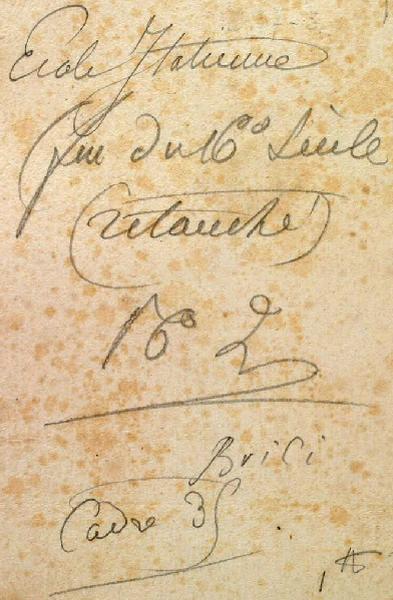 Ecole Italienne
fin du 16e Siècle
(retouché)
No 2
Cadre 35